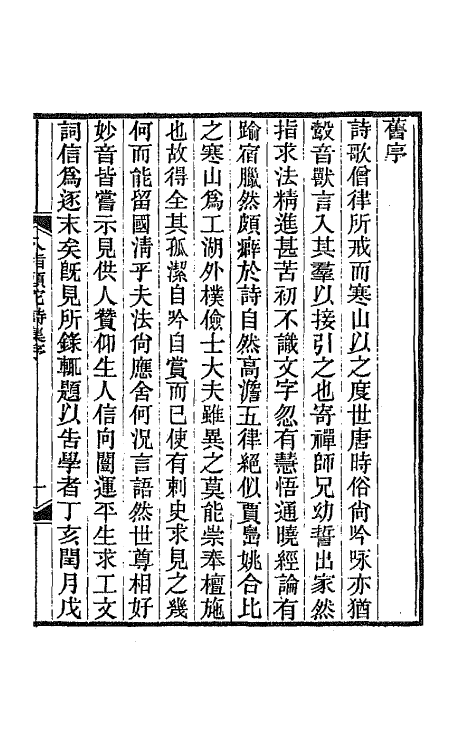 舊序
詩歌僧律所戒而寒山以之度世唐時俗尙吟咏亦猶
鷇音獸言入其羣以接引之也寄禪師兄幼誓出家然
指求法精進甚苦初不識文字忽有慧悟通曉經論有
踰宿臘然頗癖於詩自然高澹五律絕似賈島姚合比
之寒山爲工湖外樸儉士大夫雖異之莫能崇奉檀施
也故得全其孤潔自吟自賞而已使有刺史求見之幾
何而能留國清乎夫法尙應舍何況言語然世尊相好
妙音皆嘗示見供人贊仰生人信向闓運平生求工文
詞信爲逐末矣旣見所錄輒題以告學者丁亥閏月戊
八指頭陀詩集序
一